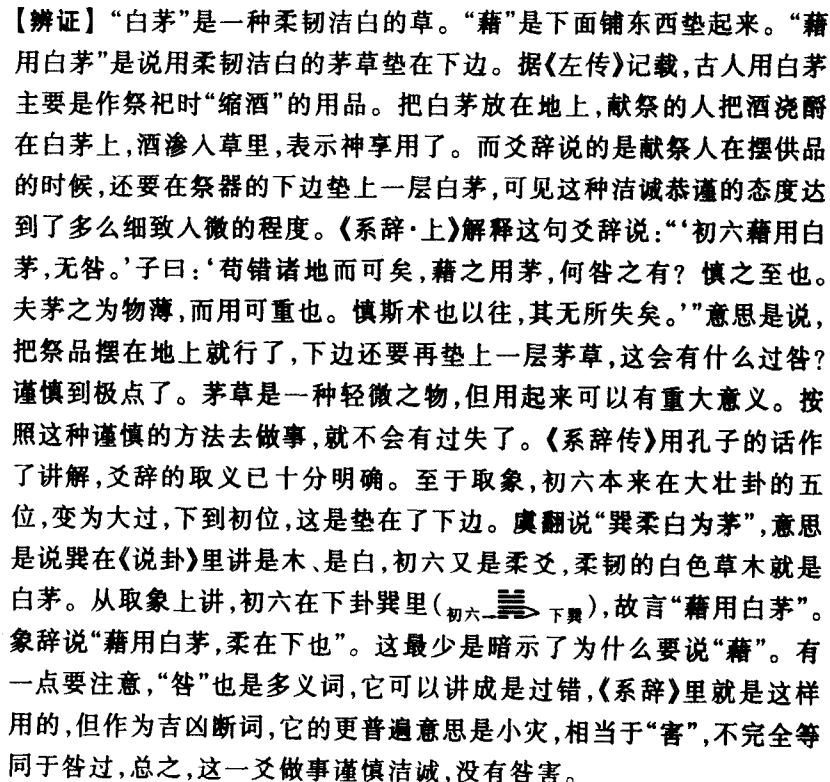 【辨证】“白茅”是一种柔韧洁白的草。“藉”是下面铺东西垫起来。“藉
用白茅”是说用柔韧洁白的茅草垫在下边。据《左传》记载,古人用白茅
主要是作祭祀时“缩酒”的用品。把白茅放在地上,献祭的人把酒浇酹
在白茅上,酒渗入草里,表示神享用了。而爻辞说的是献祭人在摆供品
的时候,还要在祭器的下边垫上一层白茅,可见这种洁诚恭谨的态度达
到了多么细致入微的程度。《系辞·上》解释这句爻辞说:“‘初六藉用白
茅,无咎。’子曰:‘苟错诸地而可矣,藉之用茅,何咎之有？慎之至也。
夫茅之为物薄,而用可重也。慎斯术也以往,其无所失矣。’”意思是说,
把祭品摆在地上就行了,下边还要再垫上一层茅草,这会有什么过咎?
谨慎到极点了。茅草是一种轻微之物,但用起来可以有重大意义。按
照这种谨慎的方法去做事,就不会有过失了。《系辞传》用孔子的话作
了讲解,爻辞的取义已十分明确。至于取象,初六本来在大壮卦的五
位,变为大过,下到初位,这是垫在了下边。虞翻说“巽柔白为茅”,意思
是说巽在《说卦》里讲是木、是白,初六又是柔爻,柔韧的白色草木就是
白茅。从取象上讲,初六在下卦巽里(初六 下巽),故言“藉用白茅”。
象辞说“藉用白茅,柔在下也”。这最少是暗示了为什么要说“藉”。有
一点要注意,“咎”也是多义词,它可以讲成是过错,《系辞》里就是这样
用的,但作为吉凶断词,它的更普遍意思是小灾,相当于“害”,不完全等
同于咎过,总之,这一爻做事谨慎洁诚,没有咎害。